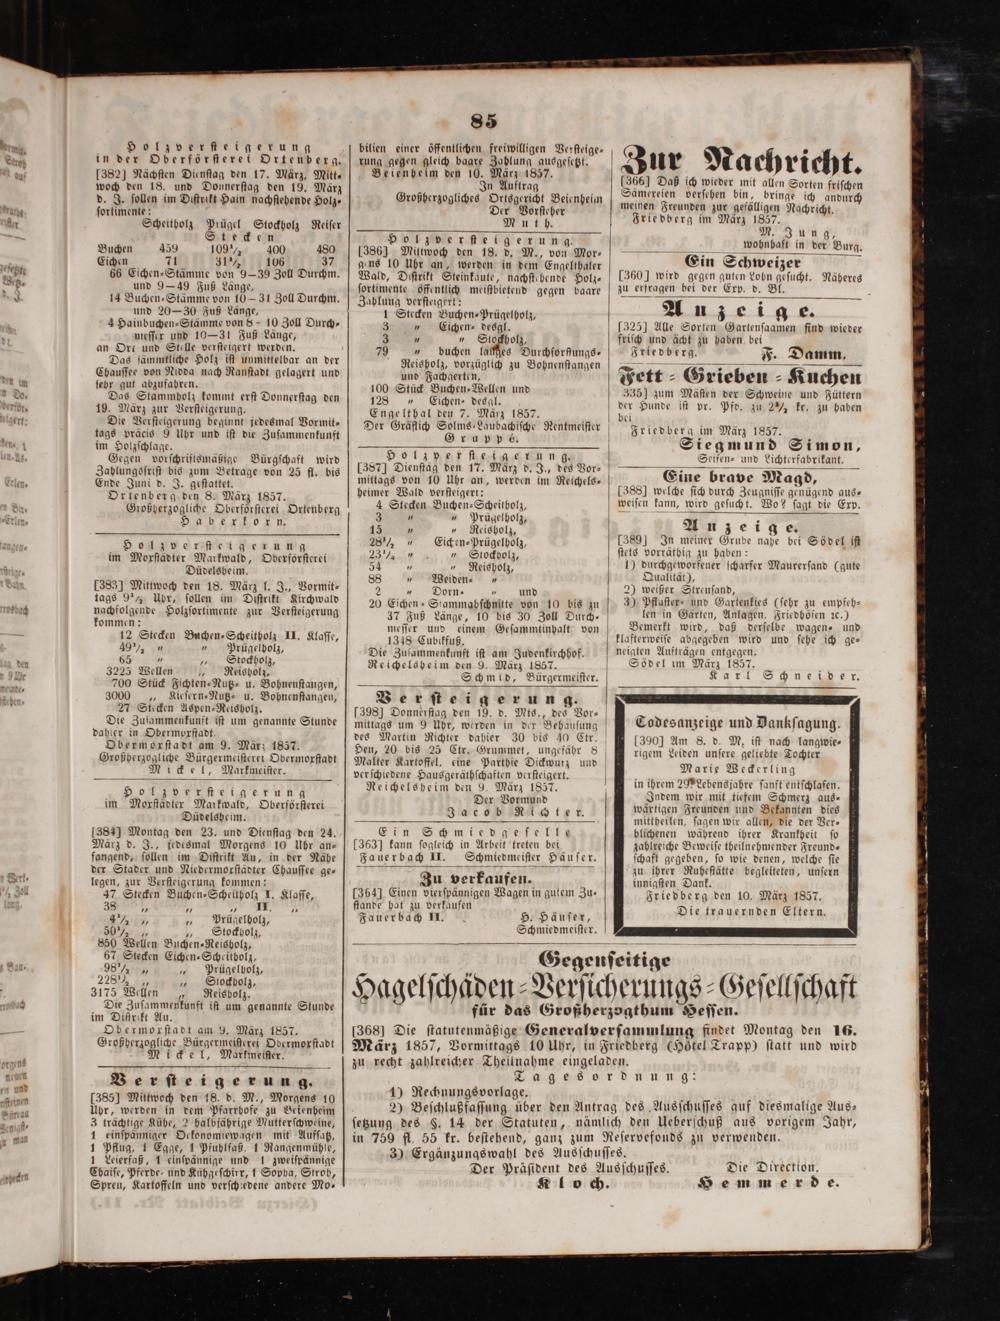 85
Holzversteigerung
in der Oberförsterei Ortenberg.
[382] Nächsten Dienstag den 17. März, Mitt-
woch den 18. und Donnerstag den 19. März
d. J. sollen im Distrikt Hain nachstehende Holz-
sortimente:
Scheitholz Prügel Stockholz Reiser
Stecken
Buchen 459 109½ 400 480
Eichen 71 31¾ 106 37
66 Eichen-Stämme von 9–39 Zoll Durchm.
und 9–49 Fuß Länge,
14 Buchen-Stämme von 10–31 Zoll Durchm.
und 20–30 Fuß Länge,
4 Hainbuchen-Stämme von 8–10 Zoll Durch-
messer und 10–31 Fuß Länge,
an Ort und Stelle versteigert werden.
Das sämmtliche Holz ist unmittelbar an der
Chaussee von Nidda nach Ranstadt gelagert und
sehr gut abzufahren.
Das Stammholz kommt erst Donnerstag den
19. März zur Versteigerung.
Die Versteigerung beginnt jedesmal Vormit-
tags präcis 9 Uhr und ist die Zusammenkunft
im Holzschlage.
Gegen vorschriftsmäßige Bürgschaft wird
Zahlungsfrist bis zum Betrage von 25 fl. bis
Ende Juni d. J. gestattet.
Ortenberg den 8. März 1857.
Großherzogliche Oberförsterei Ortenberg
Haberkorn.
Holzversteigerung
im Morstädter Markwald, Oberförsterei
Düdelsheim.
[383] Mittwoch den 18. März l. J., Vormit-
tags 9½ Uhr, sollen im Distrikt Kirchwald
nachfolgende Holzsortimente zur Versteigerung
kommen:
12 Stecken Buchen-Scheitholz II. Klasse,
49½ „ „ Prügelholz,
65 „ „ Stockholz,
3225 Wellen „ Reisholz,
700 Stück Fichten-Nutz- u. Bohnenstangen,
3000 „ Kiefern-Nutz- u. Bohnenstangen,
27 Stecken Aspen-Reisholz.
Die Zusammenkunft ist um genannte Stunde
dahier in Obermorstadt.
Obermorstadt am 9. März 1857.
Großherzogliche Bürgermeisterei Obermorstadt
Mickel, Markmeister.
Holzversteigerung
im Morstädter Markwald, Oberförsterei
Düdelsheim.
[384] Montag den 23. und Dienstag den 24.
März d. J., jedesmal Morgens 10 Uhr an-
fangend, sollen im Distrikt Au, in der Nähe
der Stader und Niedermorstädter Chaussee ge-
legen, zur Versteigerung kommen:
47 Stecken Buchen-Scheitholz I. Klasse,
38 „ „ „ II. „
4½ „ „ Prügelholz,
50½ „ „ Stockholz,
850 Wellen Buchen-Reisholz,
67 Stecken Eichen-Scheitholz,
98½ „ „ Prügelholz,
228½ „ „ Stockholz,
3175 Wellen „ Reisholz.
Die Zusammenkunft ist um genannte Stunde
im Distrikt Au.
Obermorstadt am 9. März 1857.
Großherzogliche Bürgermeisterei Obermorstadt
Mickel, Markmeister.
Versteigerung.
[385] Mittwoch den 18. d. M., Morgens 10
Uhr, werden in dem Pfarrhofe zu Beienheim
3 trächtige Kühe, 2 halbjährige Mutterschweine,
1 einspänniger Oekonomiewagen mit Aufsatz,
1 Pflug, 1 Egge, 1 Pfuhlfaß, 1 Rangenmühle,
1 Leierfaß, 1 einspännige und 1 zweispännige
Chaise, Pferde- und Kuhgeschirr, 1 Sopha, Stroh,
Spreu, Kartoffeln und verschiedene andere Mo-
bilien einer öffentlichen freiwilligen Versteige-
rung gegen gleich baare Zahlung ausgesetzt.
Beienheim den 10. März 1857.
In Auftrag
Großherzogliches Ortsgericht Beienheim
Der Vorsteher
Muth.
Holzversteigerung.
[386] Mittwoch den 18. d. M., von Mor-
gens 10 Uhr an, werden in dem Engelthaler
Wald, Distrikt Steinkaute, nachstehende Holz-
sortimente öffentlich meistbietend gegen baare
Zahlung versteigert:
1 Stecken Buchen-Prügelholz,
3 „ Eichen- desgl.
3 „ „ Stockholz,
79 „ buchen langes Durchforstungs-
Reisholz, vorzüglich zu Bohnenstangen
und Fachgerten,
100 Stück Buchen-Wellen und
128 „ Eichen- desgl.
Engelthal den 7. März 1857.
Der Gräflich Solms-Laubachische Rentmeister
Gruppé.
Holzversteigerung.
[387] Dienstag den 17. März d. J., des Vor-
mittags von 10 Uhr an, werden im Reichels-
heimer Wald versteigert:
4 Stecken Buchen-Scheitholz,
3 „ „ Prügelholz,
15 „ „ Reisholz,
28½ „ Eichen-Prügelholz,
23¼ „ „ Stockholz,
54 „ „ Reisholz,
88 „ Weiden- „
2 „ Dorn- „ und
20 Eichen-Stammabschnitte von 10 bis zu
37 Fuß Länge, 10 bis 30 Zoll Durch-
messer und einem Gesammtinhalt von
1348 Cubikfuß.
Die Zusammenkunft ist am Judenkirchhof.
Reichelsheim den 9. März 1857.
Schmid, Bürgermeister.
Versteigerung.
[398] Donnerstag den 19. d. Mts., des Vor-
mittags um 9 Uhr, werden in der Behausung
des Martin Richter dahier 30 bis 40 Ctr.
Heu, 20 bis 25 Ctr. Grummet, ungefähr 8
Malter Kartoffel, eine Parthie Dickwurz und
verschiedene Hausgeräthschaften versteigert.
Reichelsheim den 9. März 1857.
Der Vormund
Jacob Richter.
Ein Schmiedgeselle
[363] kann sogleich in Arbeit treten bei
Fauerbach II. Schmiedmeister Häuser.
Zu verkaufen.
[364] Einen vierspännigen Wagen in gutem Zu-
stande hat zu verkaufen
Fauerbach II. H. Häuser,
Schmiedmeister.
Zur Nachricht.
[366] Daß ich wieder mit allen Sorten frischen
Sämereien versehen bin, bringe ich andurch
meinen Freunden zur gefälligen Nachricht.
Friedberg im März 1857.
M. Jung,
wohnhaft in der Burg.
Ein Schweizer
[360] wird gegen guten Lohn gesucht. Näheres
zu erfragen bei der Exp. d. Bl.
Anzeige.
[325] Alle Sorten Gartensaamen sind wieder
frisch und ächt zu haben bei
Friedberg. F. Damm.
Fett-Grieben-Kuchen
335] zum Mästen der Schweine und Füttern
der Hunde ist pr. Pfd. zu 2½ kr. zu haben
bei
Friedberg im März 1857.
Siegmund Simon,
Seifen- und Lichterfabrikant.
Eine brave Magd,
[388] welche sich durch Zeugnisse genügend aus-
weisen kann, wird gesucht. Wo? sagt die Exp.
Anzeige.
[389] In meiner Grube nahe bei Södel ist
stets vorräthig zu haben:
1) durchgeworfener scharfer Maurersand (gute
Qualität),
2) weißer Streusand,
3) Pflaster- und Gartenkies (sehr zu empfeh-
len in Gärten, Anlagen, Friedhöfen ꝛc.)
Bemerkt wird, daß derselbe wagen- und
klafterweise abgegeben wird und sehe ich ge-
neigten Aufträgen entgegen.
Södel im März 1857.
Karl Schneider.
Todesanzeige und Danksagung.
[390] Am 8. d. M. ist nach langwie-
rigem Leiden unsere geliebte Tochter
Marie Weckerling
in ihrem 29. Lebensjahre sanft entschlafen.
Indem wir mit tiefem Schmerz aus-
wärtigen Freunden und Bekannten dies
mittheilen, sagen wir allen, die der Ver-
blichenen während ihrer Krankheit so
zahlreiche Beweise theilnehmender Freund-
schaft gegeben, so wie denen, welche sie
zu ihrer Ruhestätte begleiteten, unsern
innigsten Dank.
Friedberg den 10. März 1857.
Die trauernden Eltern.
Gegenseitige
Hagelschäden-Versicherungs-Gesellschaft
für das Großherzogthum Hessen.
[368] Die statutenmäßige Generalversammlung findet Montag den 16.
März 1857, Vormittags 10 Uhr, in Friedberg (Hôtel Trapp) statt und wird
zu recht zahlreicher Theilnahme eingeladen.
Tagesordnung:
1) Rechnungsvorlage.
2) Beschlußfassung über den Antrag des Ausschusses auf diesmalige Aus-
setzung des §. 14 der Statuten, nämlich den Ueberschuß aus vorigem Jahr,
in 759 fl. 55 kr. bestehend, ganz zum Reservefonds zu verwenden.
3) Ergänzungswahl des Ausschusses.
Der Präsident des Ausschusses. Die Direction.
Kloch. Hemmerde.